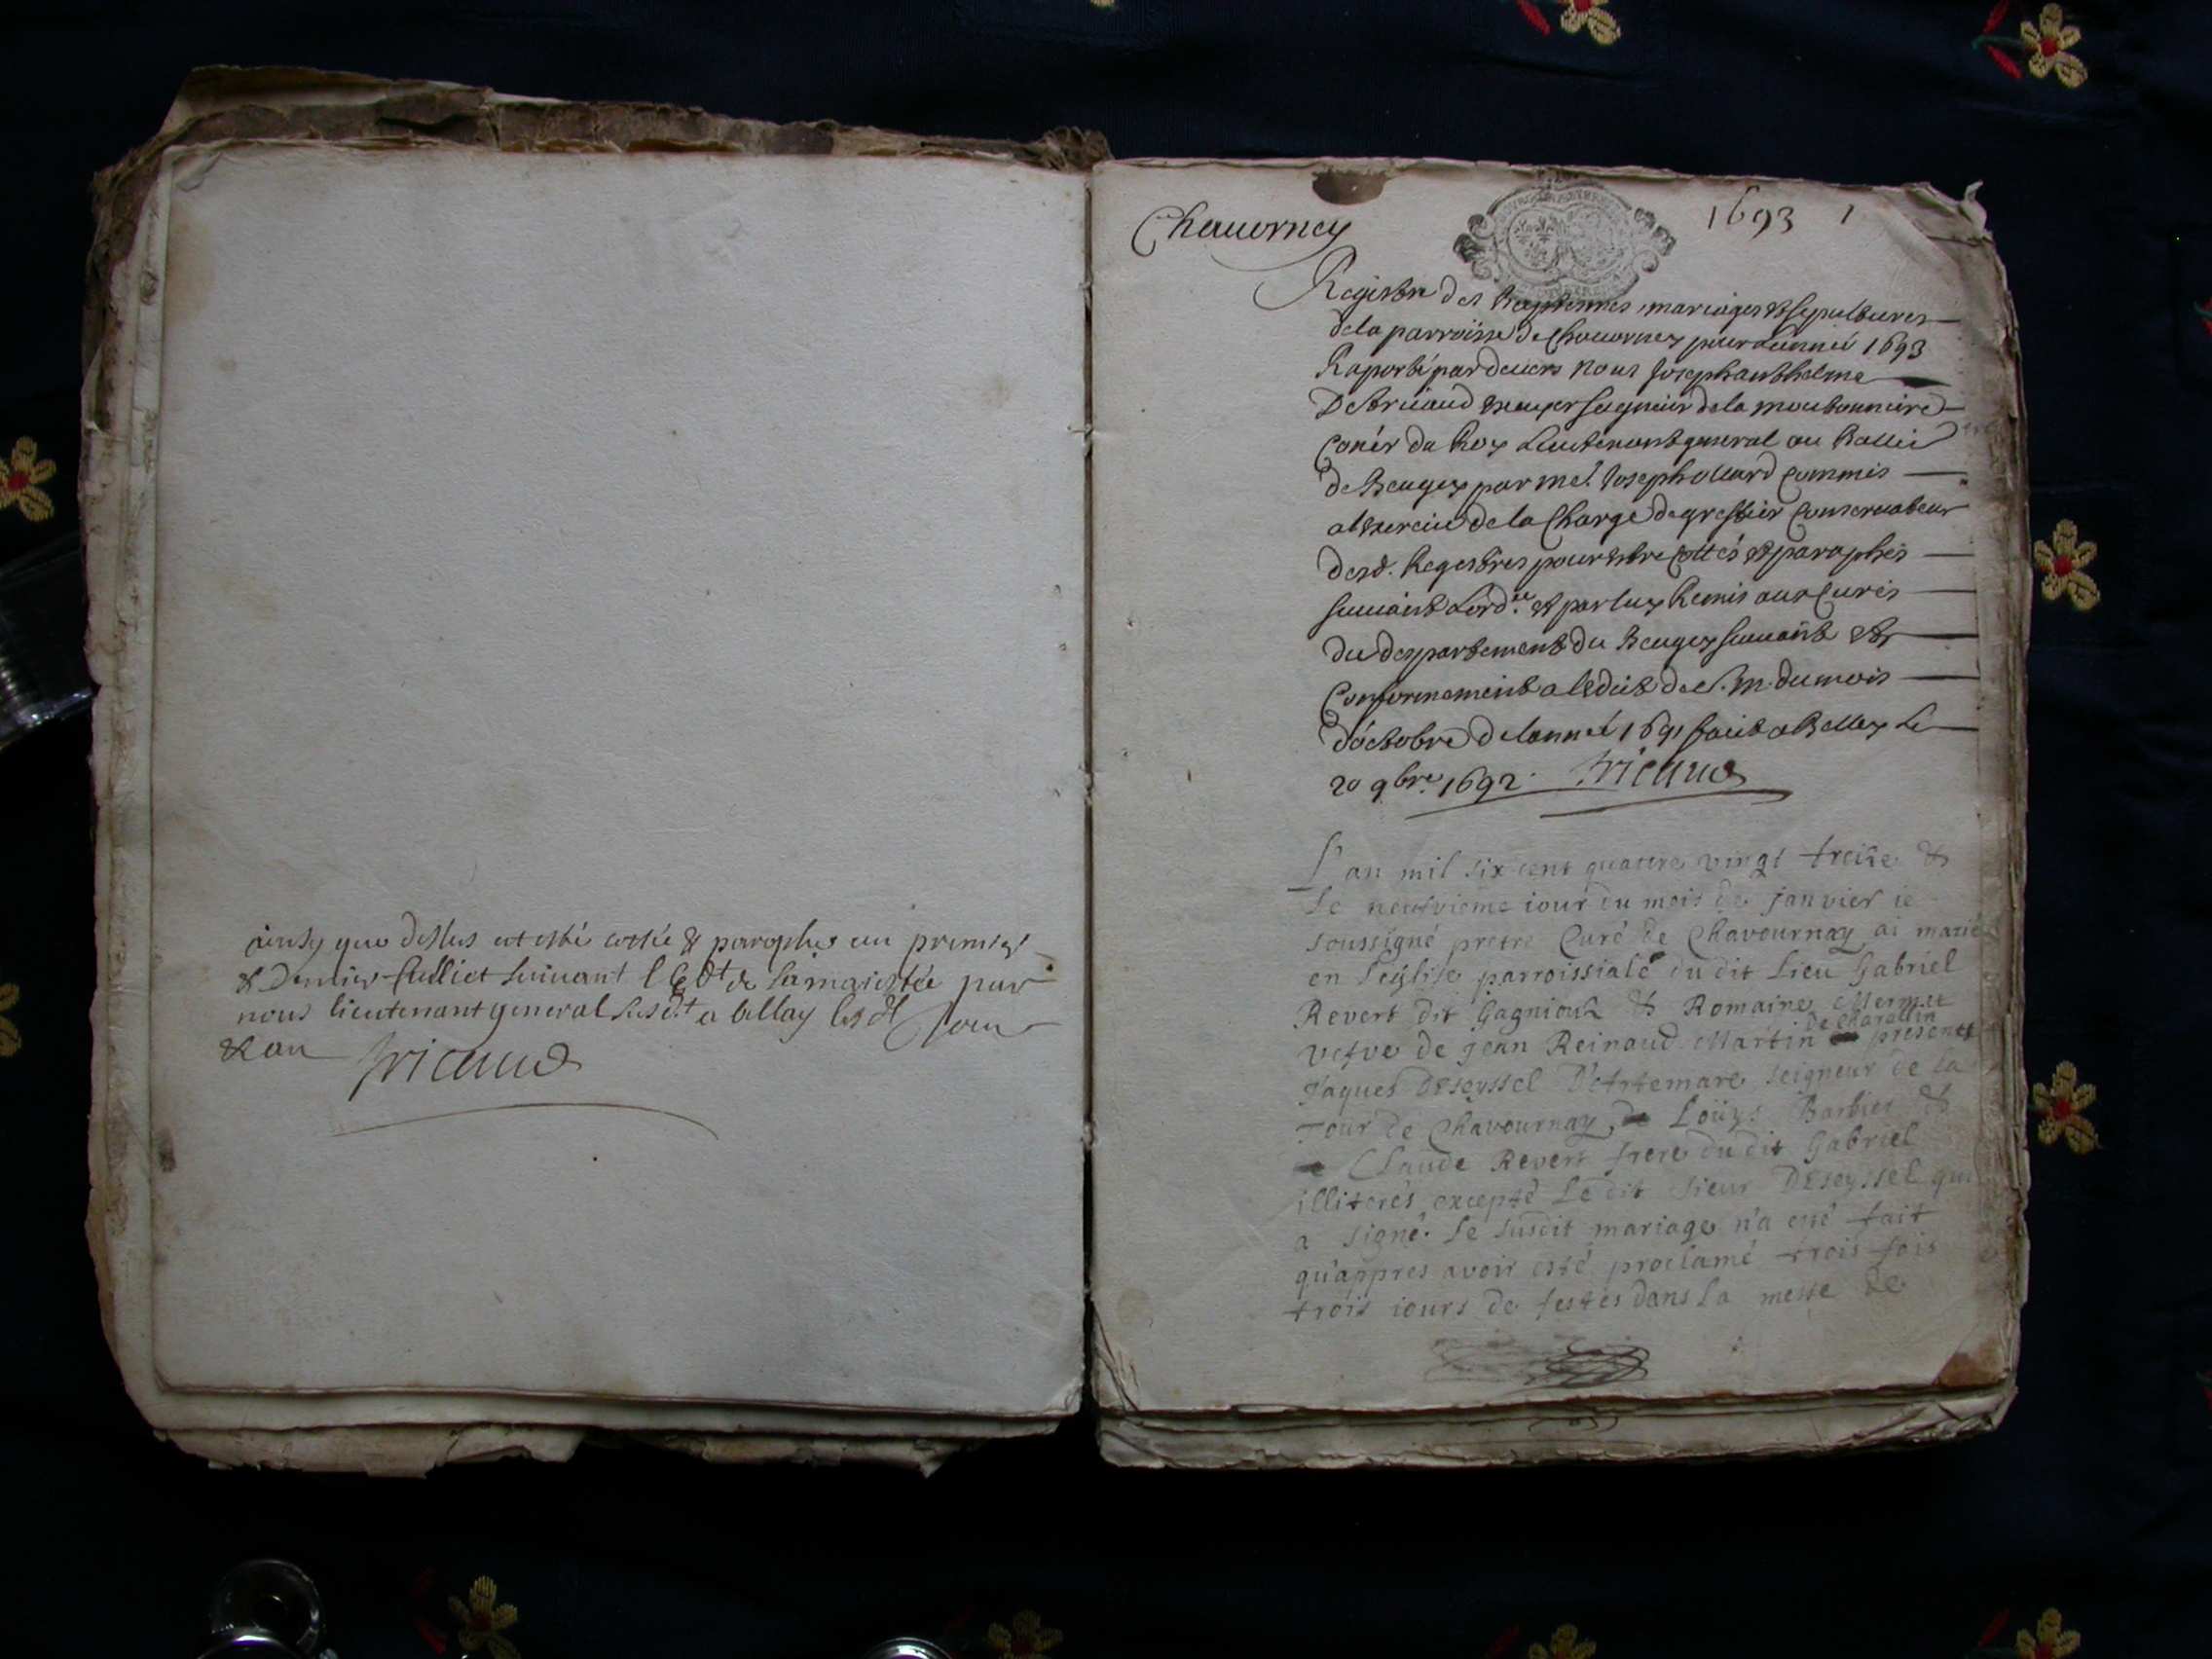 ainsy que dessus at esté cottée & paraphés au premier
& Dernier fulliet suivant l'Edt de sa maiestée par
nous lieutenant general susdt a bellay les dt Jour
& an Tricaud
Chauorney
1693 1
Registre des Baptesmes, mariages et sepultures
de la parroisse de Chauorney pour lannée 1693
Raporté par deuers nous Joseph anthelme
De tricaud escuyer seigneur de la
Coner du Roy Lieutenant general au Ballie
de Beugey par me. Joseph commis
a lexercice de la Charge de greffier Conseruateur
desd. Regestres pour estre Cottés et paraphés
suiuant Lordce et par luy Remis aux Curés
du despartement du Beugey suiuant et
Conformement a ledict de S. M. du mois
d'octobre de lanneé 1691 faict a Belley Le
20 9bre. 1692. Tricaud
L'an mil six cent quatre vingt treize &
le neufvieme iour du mois de janvier ie
soussigné pretre Curé de Chavournay ai marié
en l'eglise parroissiale du dit Lieu Gabriel
Revert dit Gagnioux & Romaine Mermet
de Charallin
vefve de jean Reinaud Martin presents
Jaques Deseyssel D'Artemare seigneur de la
Tour de Chavournay, Loüys Barbier &
Claude Revert frere du dit Gabriel
illiterés excepté Le dit sieur Deseyssel qui
a signé. Le susdit mariage n'a esté fait
qu'appres avoir esté proclamé trois fois
trois iours de festes dans la messe de